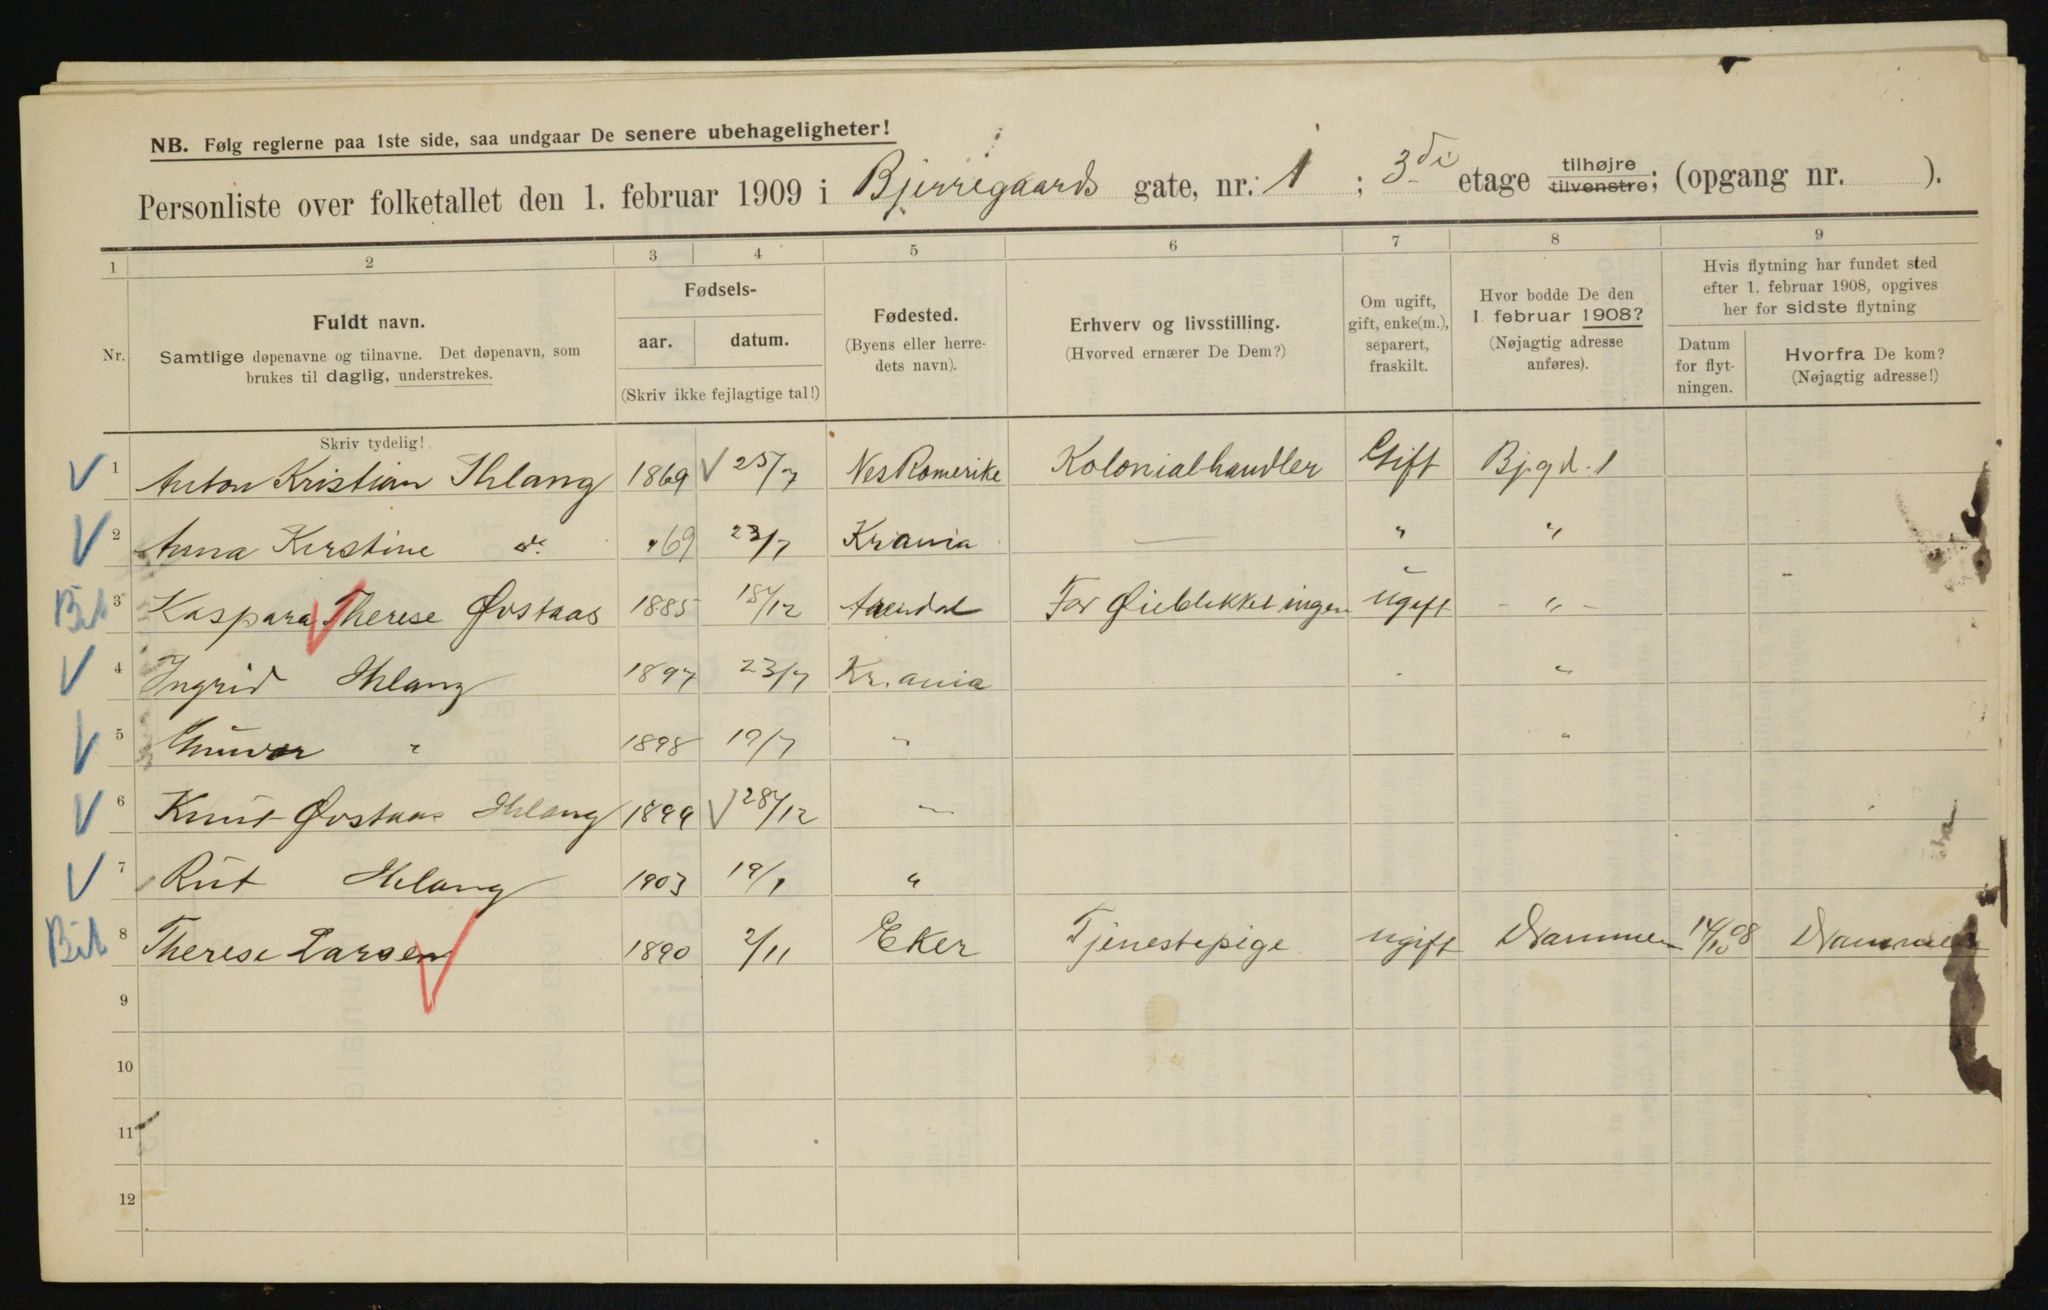 NB. Følg reglerne paa 1ste side, saa undgaar De senere ubehageligheter!
Personliste over folketallet den 1. februar 1909 i Bjerregaards gate, nr. 1 ; 3di etage tilhøjre tilvenstre; (opgang nr. ).
1 2 3 4 5 6 7 8 9
Nr.
Fuldt navn.
Samtlige døpenavne og tilnavne. Det døpenavn, som
brukes til daglig, understrekes.
Fødsels-
aar. datum.
(Skriv ikke fejlagtige tal!)
Fødested.
(Byens eller herre-
dets navn).
Erhverv og livsstilling.
(Hvorved ernærer De Dem?)
Om ugift,
gift, enke(m.),
separert,
fraskilt.
Hvor bodde De den
1. februar 1908?
(Nøjagtig adresse
anføres).
Hvis flytning har fundet sted
efter 1. februar 1908, opgives
her for sidste flytning
Datum
for flyt-
ningen.
Hvorfra De kom?
(Nøjagtig adresse!)
Skriv tydelig!
1 Anton Kristian Ihlang 1869 25/7 Nes Romerike Kolonialhandler Gift Bj.gd. 1
2 Anna Kirstine do. " 69 23/7 Krania — " "
Bib 3 Kaspara Therese Øvstaas 1885 15/12 Arendal For Øieblikket ingen ugift - " -
4 Ingrid Ihlang 1897 23/7 Kr.ania "
5 Gunvor " 1898 19/7 " "
6 Knut Øvstaas Ihlang 1899 28/12 "
7 Rut Ihlang 1903 19/1 "
Bib 8 Therese Larsen 1890 2/11 Eker Tjenestepige ugift Drammen 14/10 08 Drammen
9
10
11
12